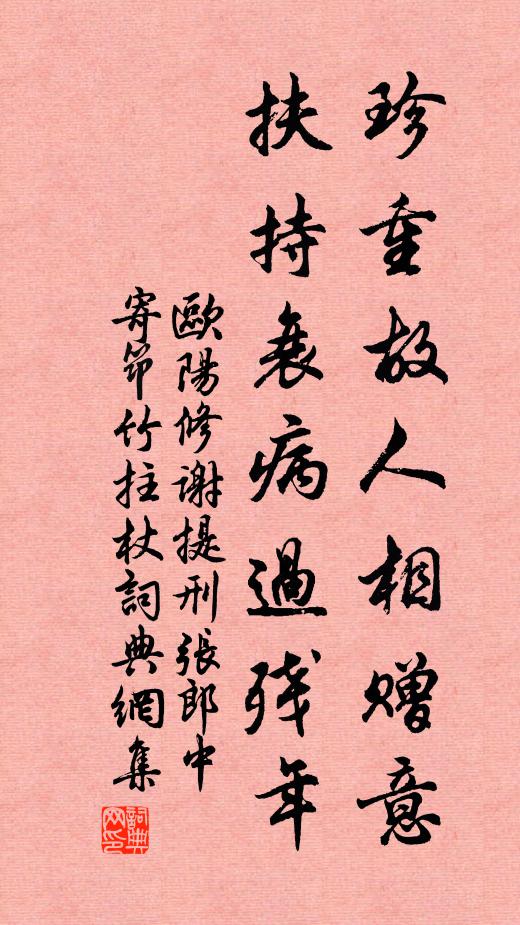 珍重故人相赠意
扶持衰病過残年
歐陽修謝提刑張郎中
寄筇竹拄杖詞典網集
詞典网印